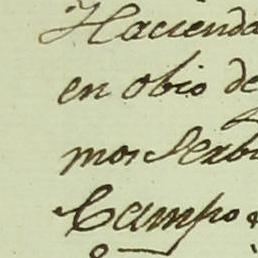 Hacienda
en obio de
mos Serbi
Campo